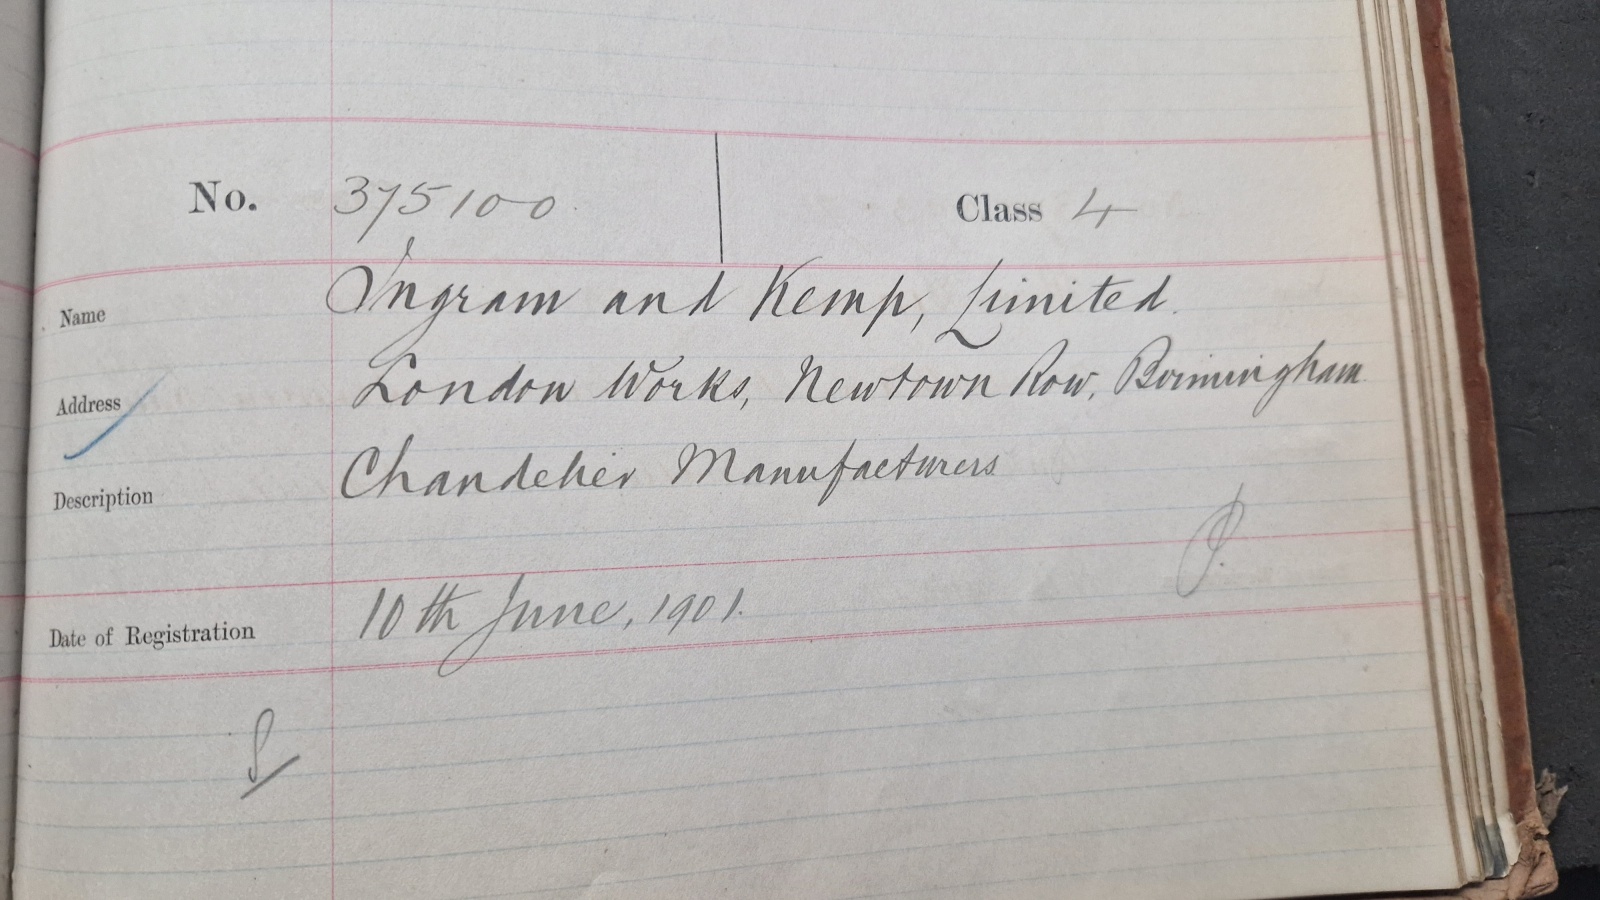 No. 375100 Class 4
Name Ingram and Kemp, Limited.
Address London Works, Newtown Row, Birmingham.
Description Chandelier Manufacturers
Date of Registration 10th June, 1901.